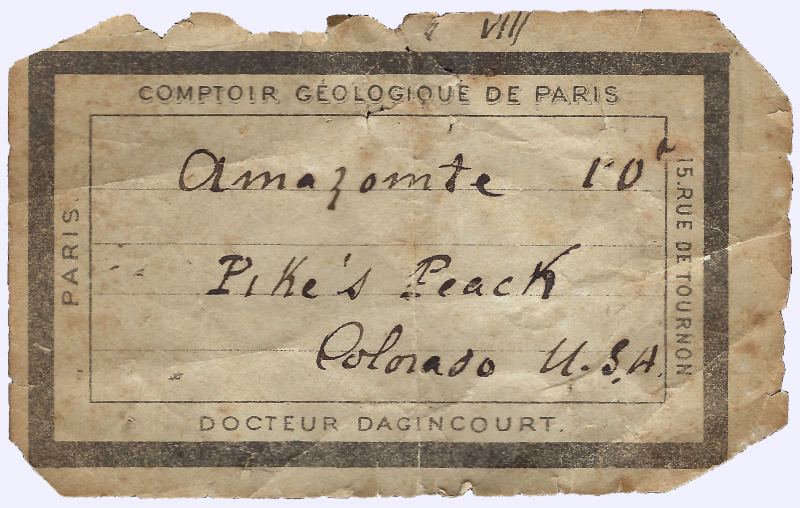 VIII
COMPTOIR GÉOLOGIQUE DE PARIS
Amazonite
Pike's Peack
Colorado U.S.A.
PARIS.
15.RUE DE TOURNON
DOCTEUR DAGINCOURT.